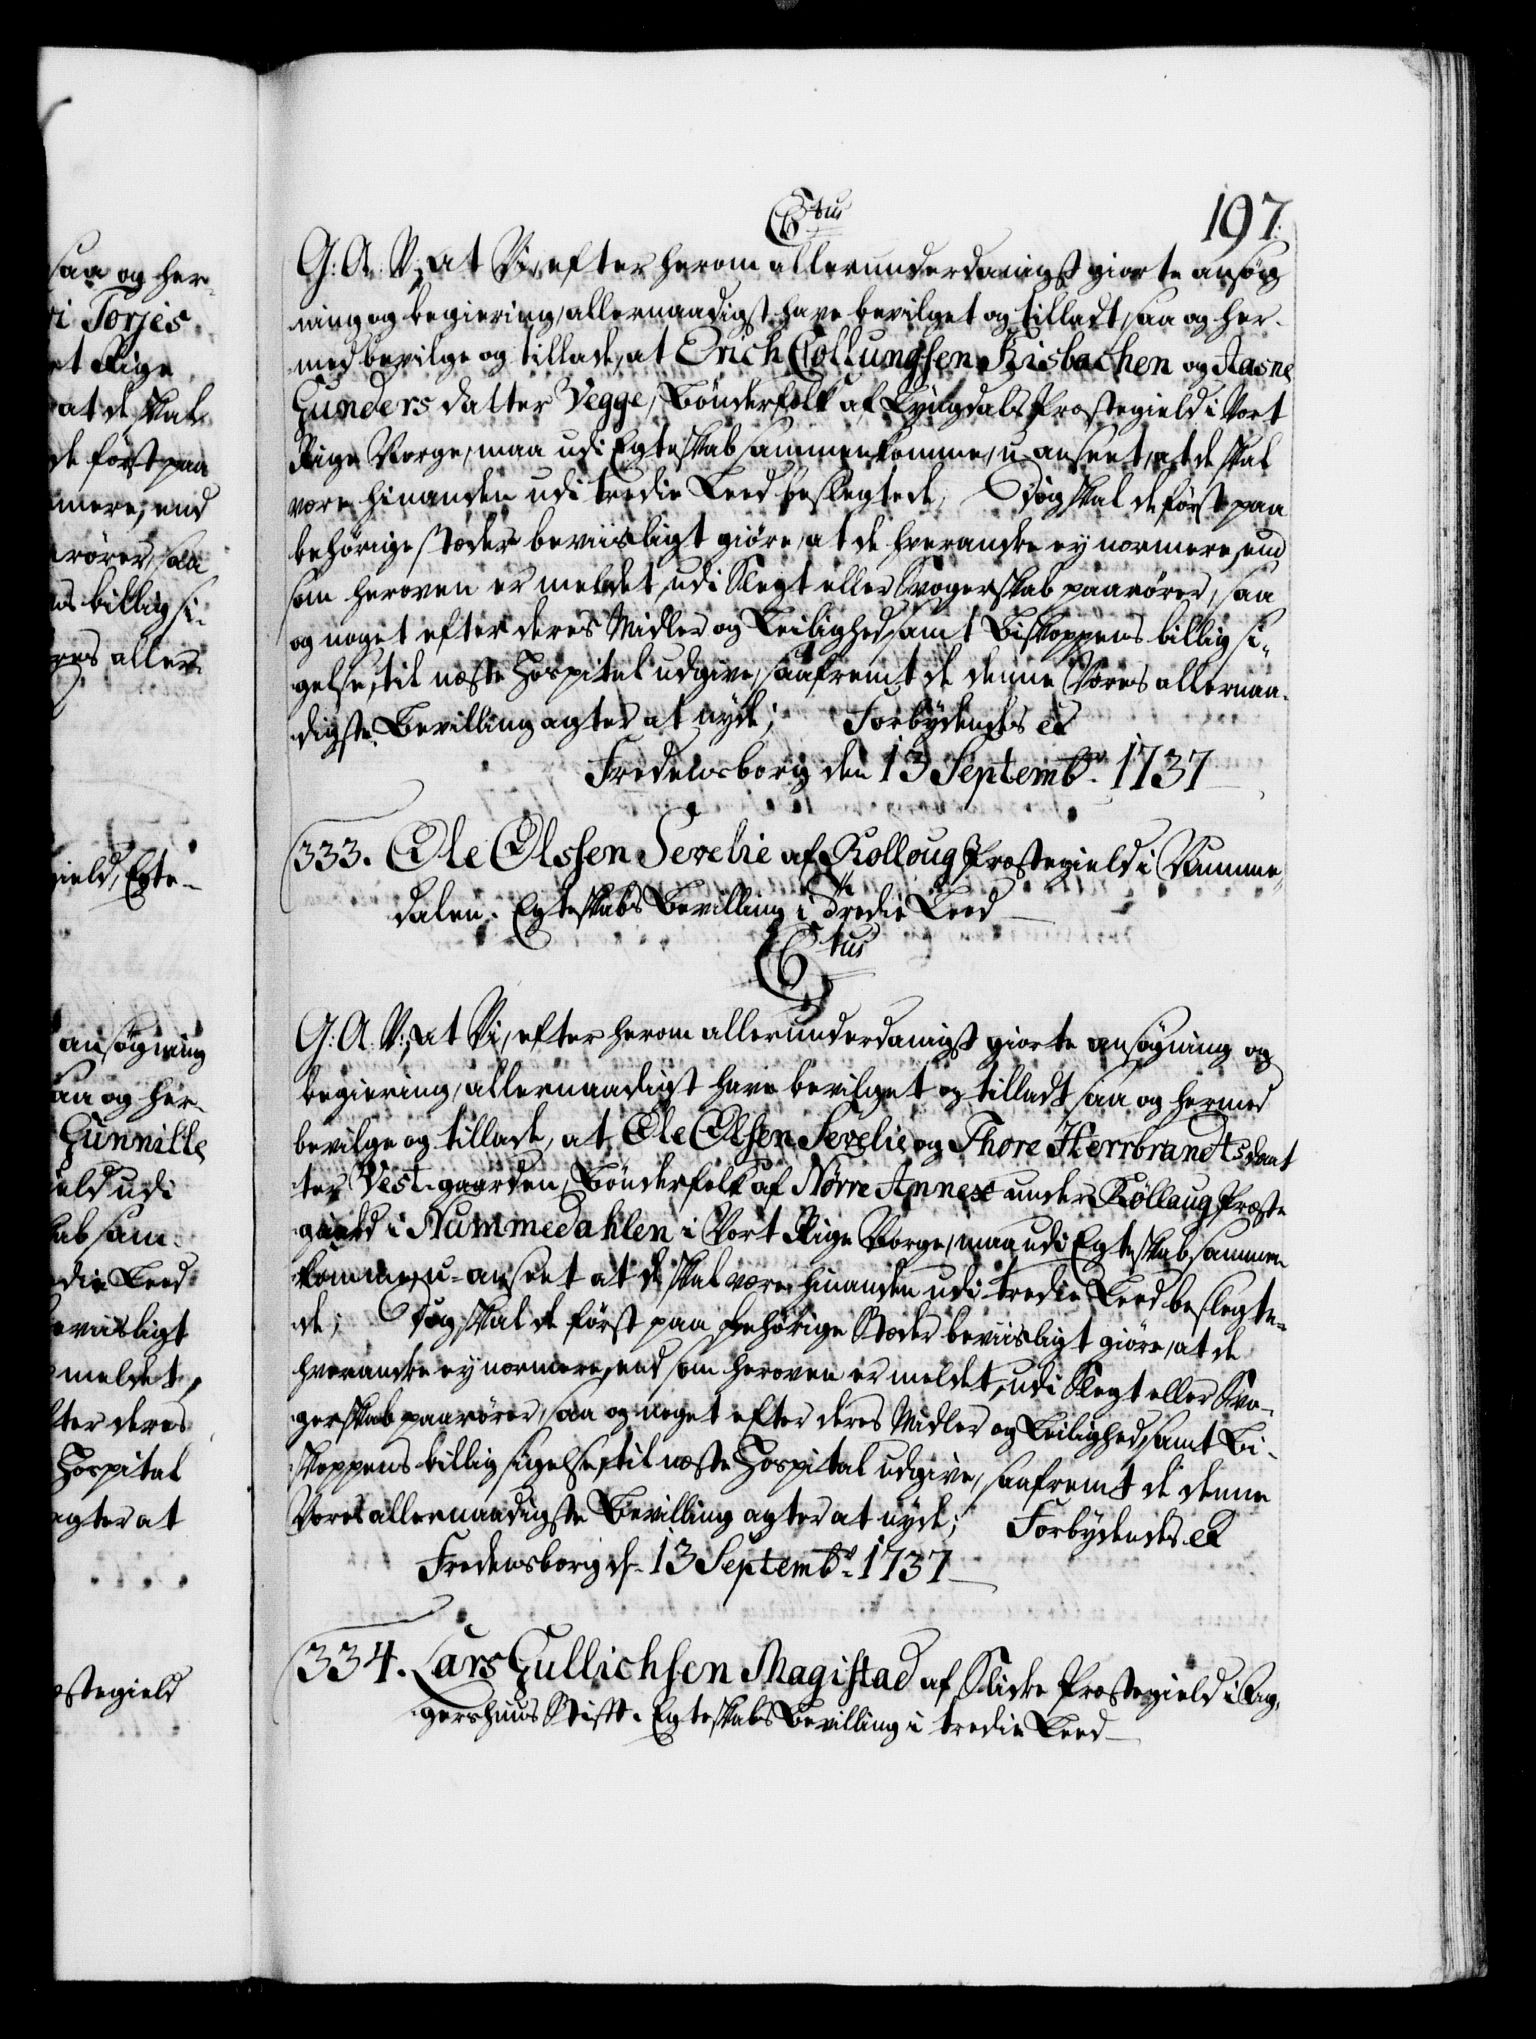 197.
C6tus
G: A: V: at Vi, efter herom allerunderdanigst giorte ansøg
ning og begiering, allernaadigst have bevilget og tilladt, saa og her-
med bevilge og tillade, at Erich Collungsen Kisbachen og Aasne
Gunders datter Vegge, Bønderfolk af Lyngdals Præstegield i Vort
Rige Norge, maa udi Egteskab sammenkomme, u-anseet, at de skal
være hinanden udi tredie Leed beslegtede, Dog skal de først paa
behørige stæder beviisligt giøre, at de hverandre ey nærmere, end
som heroven er meldet, udi Slegt eller Svogerskab paarører, saa
og noget efter deres Midler og Leilighed, samt Biskoppens billig si-
gelse, til næste Hospital udgive, saafremt de denne Vores allernaa-
digste Bevilling agter at nyde; Forbydendes &
Fredensborg den 13 Septembr. 1737
333. Ole Olssen Sevelie af Rolloug Præstegield i Numme-
dalen. Egteskabs Bevilling i Tredie Leed
C6tus
G: A: V: at Vi, efter herom allerunderdanigst giorte ansøgning og
begiering, allernaadigst have bevilget og tilladt, saa og hermed
bevilge og tillade, at Ole Olsen Sevelie og Thore Herrbrandts daat
ter Vest-gaarden, Bønderfolk af Nørre Annex under Røllaug Præste
gield i Nummedahlen i Vort Rige Norge, maa udi Egteskab sammen
komme, u-anseet at de skal være hinanden udi tredie Leed beslegte-
de; Dog skal de først paa behørige Stæder beviisligt giøre, at de
hverandre ey nærmere, end som heroven er meldet, udi Slegt eller Svo-
gerskab paarører, saa og noget efter deres Midler og Leilighed, samt Bi-
skoppens billig sigelse, til næste Hospital udgive, saafremt de denne
Vores allernaadigste Bevilling agter at nyde; Forbydendes &
Fredensborg d. 13 Septembr. 1737
334. Lars Gullichsen Magistad af Slidre Præstegield i Ag-
gershuus Stift. Egteskabs Bevilling i tredie Leed
saa og her-
ri Torjes
et Rige
at de skal
de først paa
mere, end
rører, saa
s billig si-
res aller-
gield, Egte-
ansøgning
aa og her-
Gunnille
ield udi
ab sam-
die Leed
eviisligt
meldet,
fter deres
Hospital
agter at
æstegield